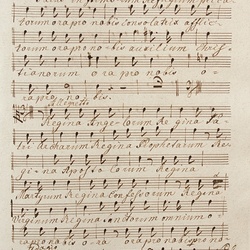 torum ora pro nobis consolatrix afflic-
torum ora pro no- bis auxilium Chris-
tianorum o ra pro nobis o-
ra pro no- bis.
Regina Angelorum Regina Pa-
tri- archarum Regina Prophetarum Re-
gi- na Aposto- lorum Regina
Martyrum Regina Confessorum Regina
Virginum Regina Sanctorum omnium o-
ra pro nobis o- ra ora pro nobis